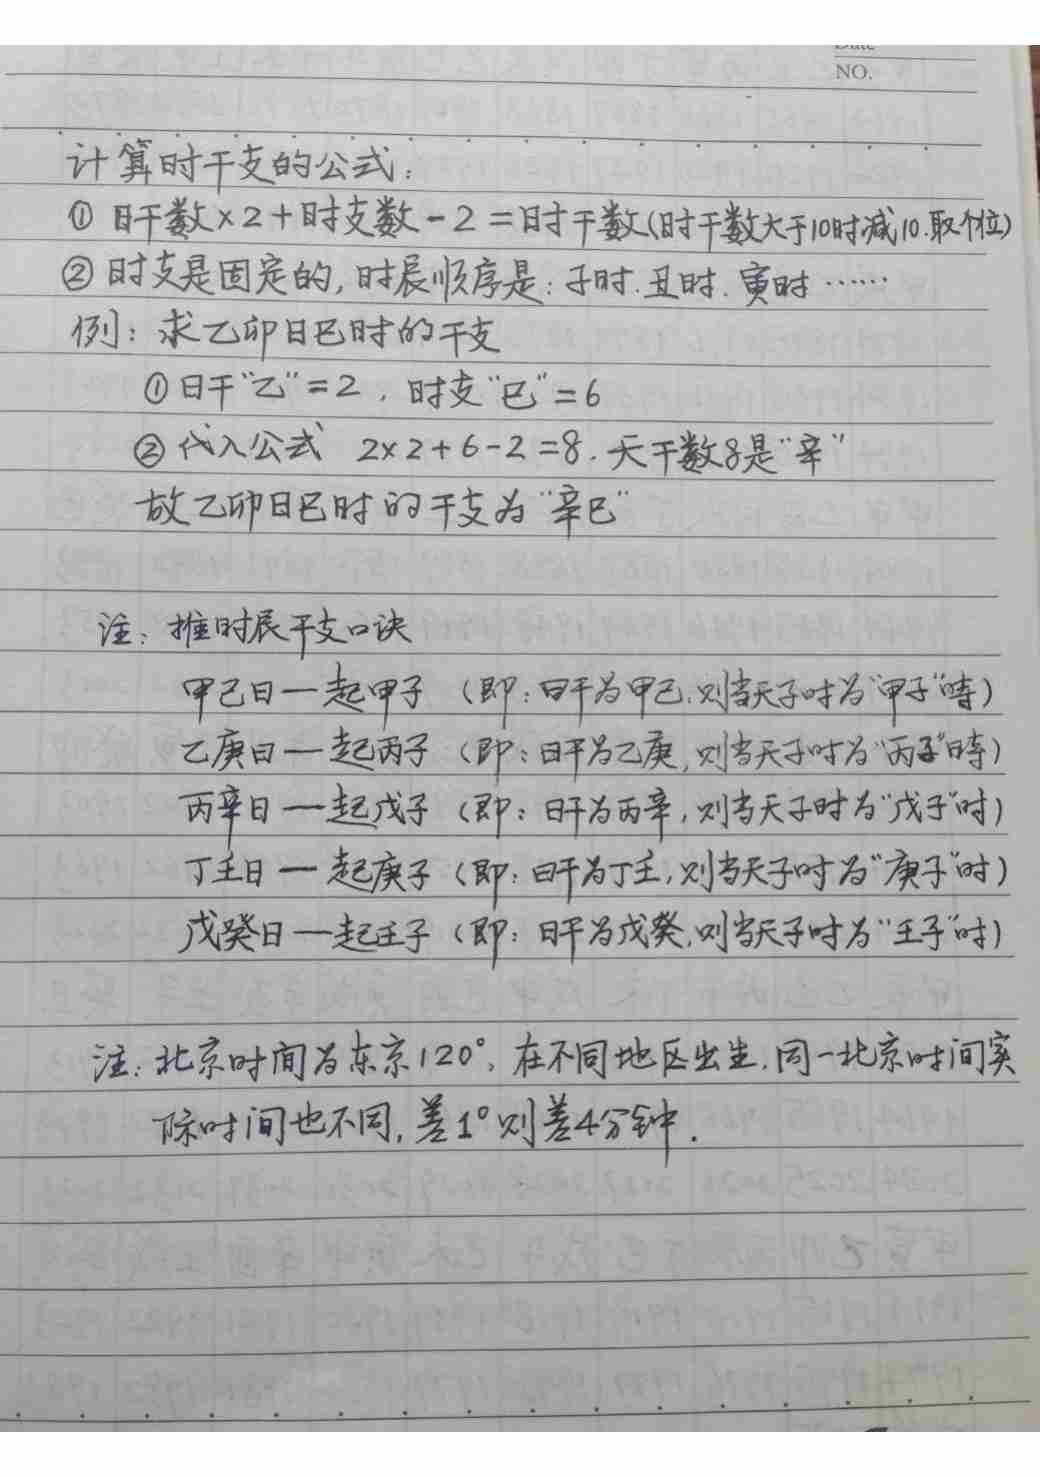 NO.
计算时干支的公式:
① 日干数×2+时支数-2=时干数(时干数大于10时减10.取个位)
② 时支是固定的,时辰顺序是:子时.丑时.寅时……
例:求乙卯日巳时的干支
①日干"乙"=2,时支"巳"=6
②代入公式 2×2+6-2=8.天干数8是"辛"
故乙卯日巳时的干支为"辛巳"
注:推时辰干支口诀
甲己日—起甲子(即:日干为甲己,则当天子时为"甲子"時)
乙庚日—起丙子(即:日干为乙庚,则当天子时为"丙子"時)
丙辛日—起戊子(即:日干为丙辛,则当天子时为"戊子"时)
丁壬日—起庚子(即:日干为丁壬,则当天子时为"庚子"时)
戊癸日—起壬子(即:日干为戊癸,则当天子时为"壬子"时)
注:北京时间为东京120°,在不同地区出生.同一北京时间实
际时间也不同,差1°则差4分钟.